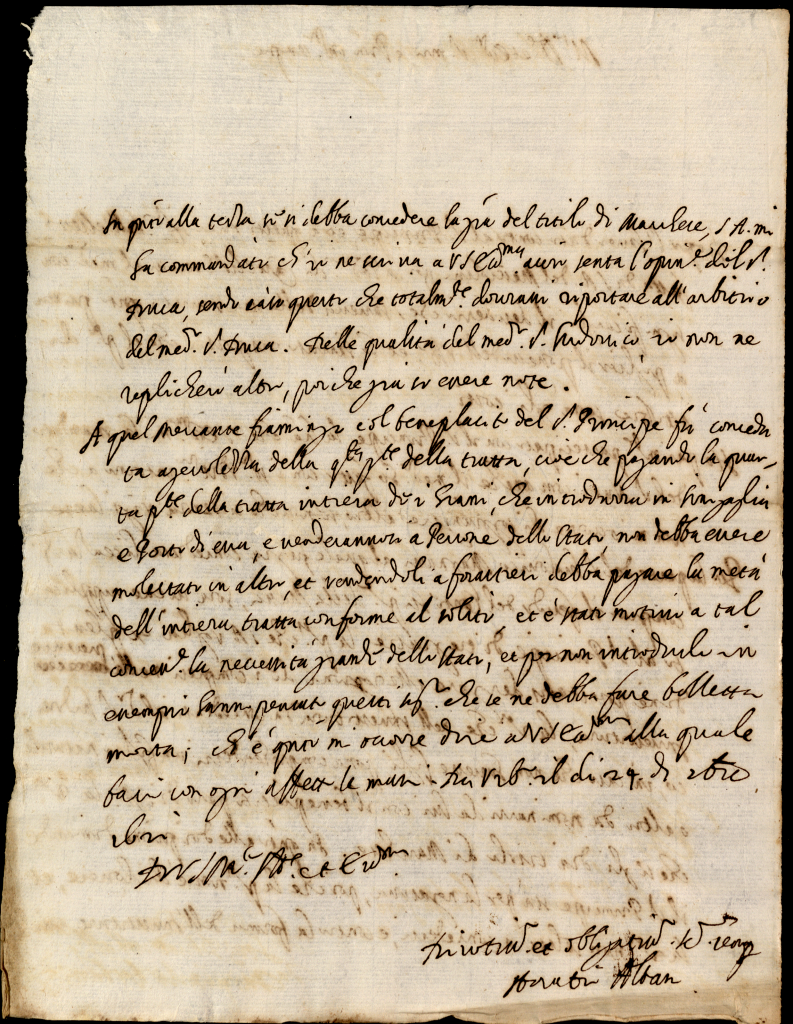 In q.to alla terza se si debba concedere la gra del titolo di Marchese, S A. mi
ha commandato ch'io ne scriva a V S Ecc.ma avri senta l'opin.e del S.r
Duca, sendo cose questi che totalm.te dovrani riportare all'arbitrio
del med.o S. Duca. Delle qualità del med.o S. Ludovico io non ne
replicherò altro, poiche già le erere note.
A quel Mercante fiamingo col beneplacito del S. Principe fù concedu
ta agevolezza della q.ta p.te della tratta, cioè che pagando la quar-
ta p.te della tratta intiera de i grani, che introdurra in Sinigaglia
e Porto di essa, e venderannosi a Persone dello Stato non debba essere
molestato in altro, et vendendoli a forastieri debba pagare la metà
dell'intiera tratta conforme al solito, et è stato motivo a tal
conces.ne la necessità grande dello Stato, et per non introdurlo in
essempio hanno pensato questi SS.ri che se ne debba fare bolletta
morta; ch'è q.to mi occorre dire a V S Ecc.ma alla quale
bacio con ogni affetto le mani. Da Urb.o il di 24 di
Di V S Ecc.ma
et oblig.mo Ser.e
Horatio Albani